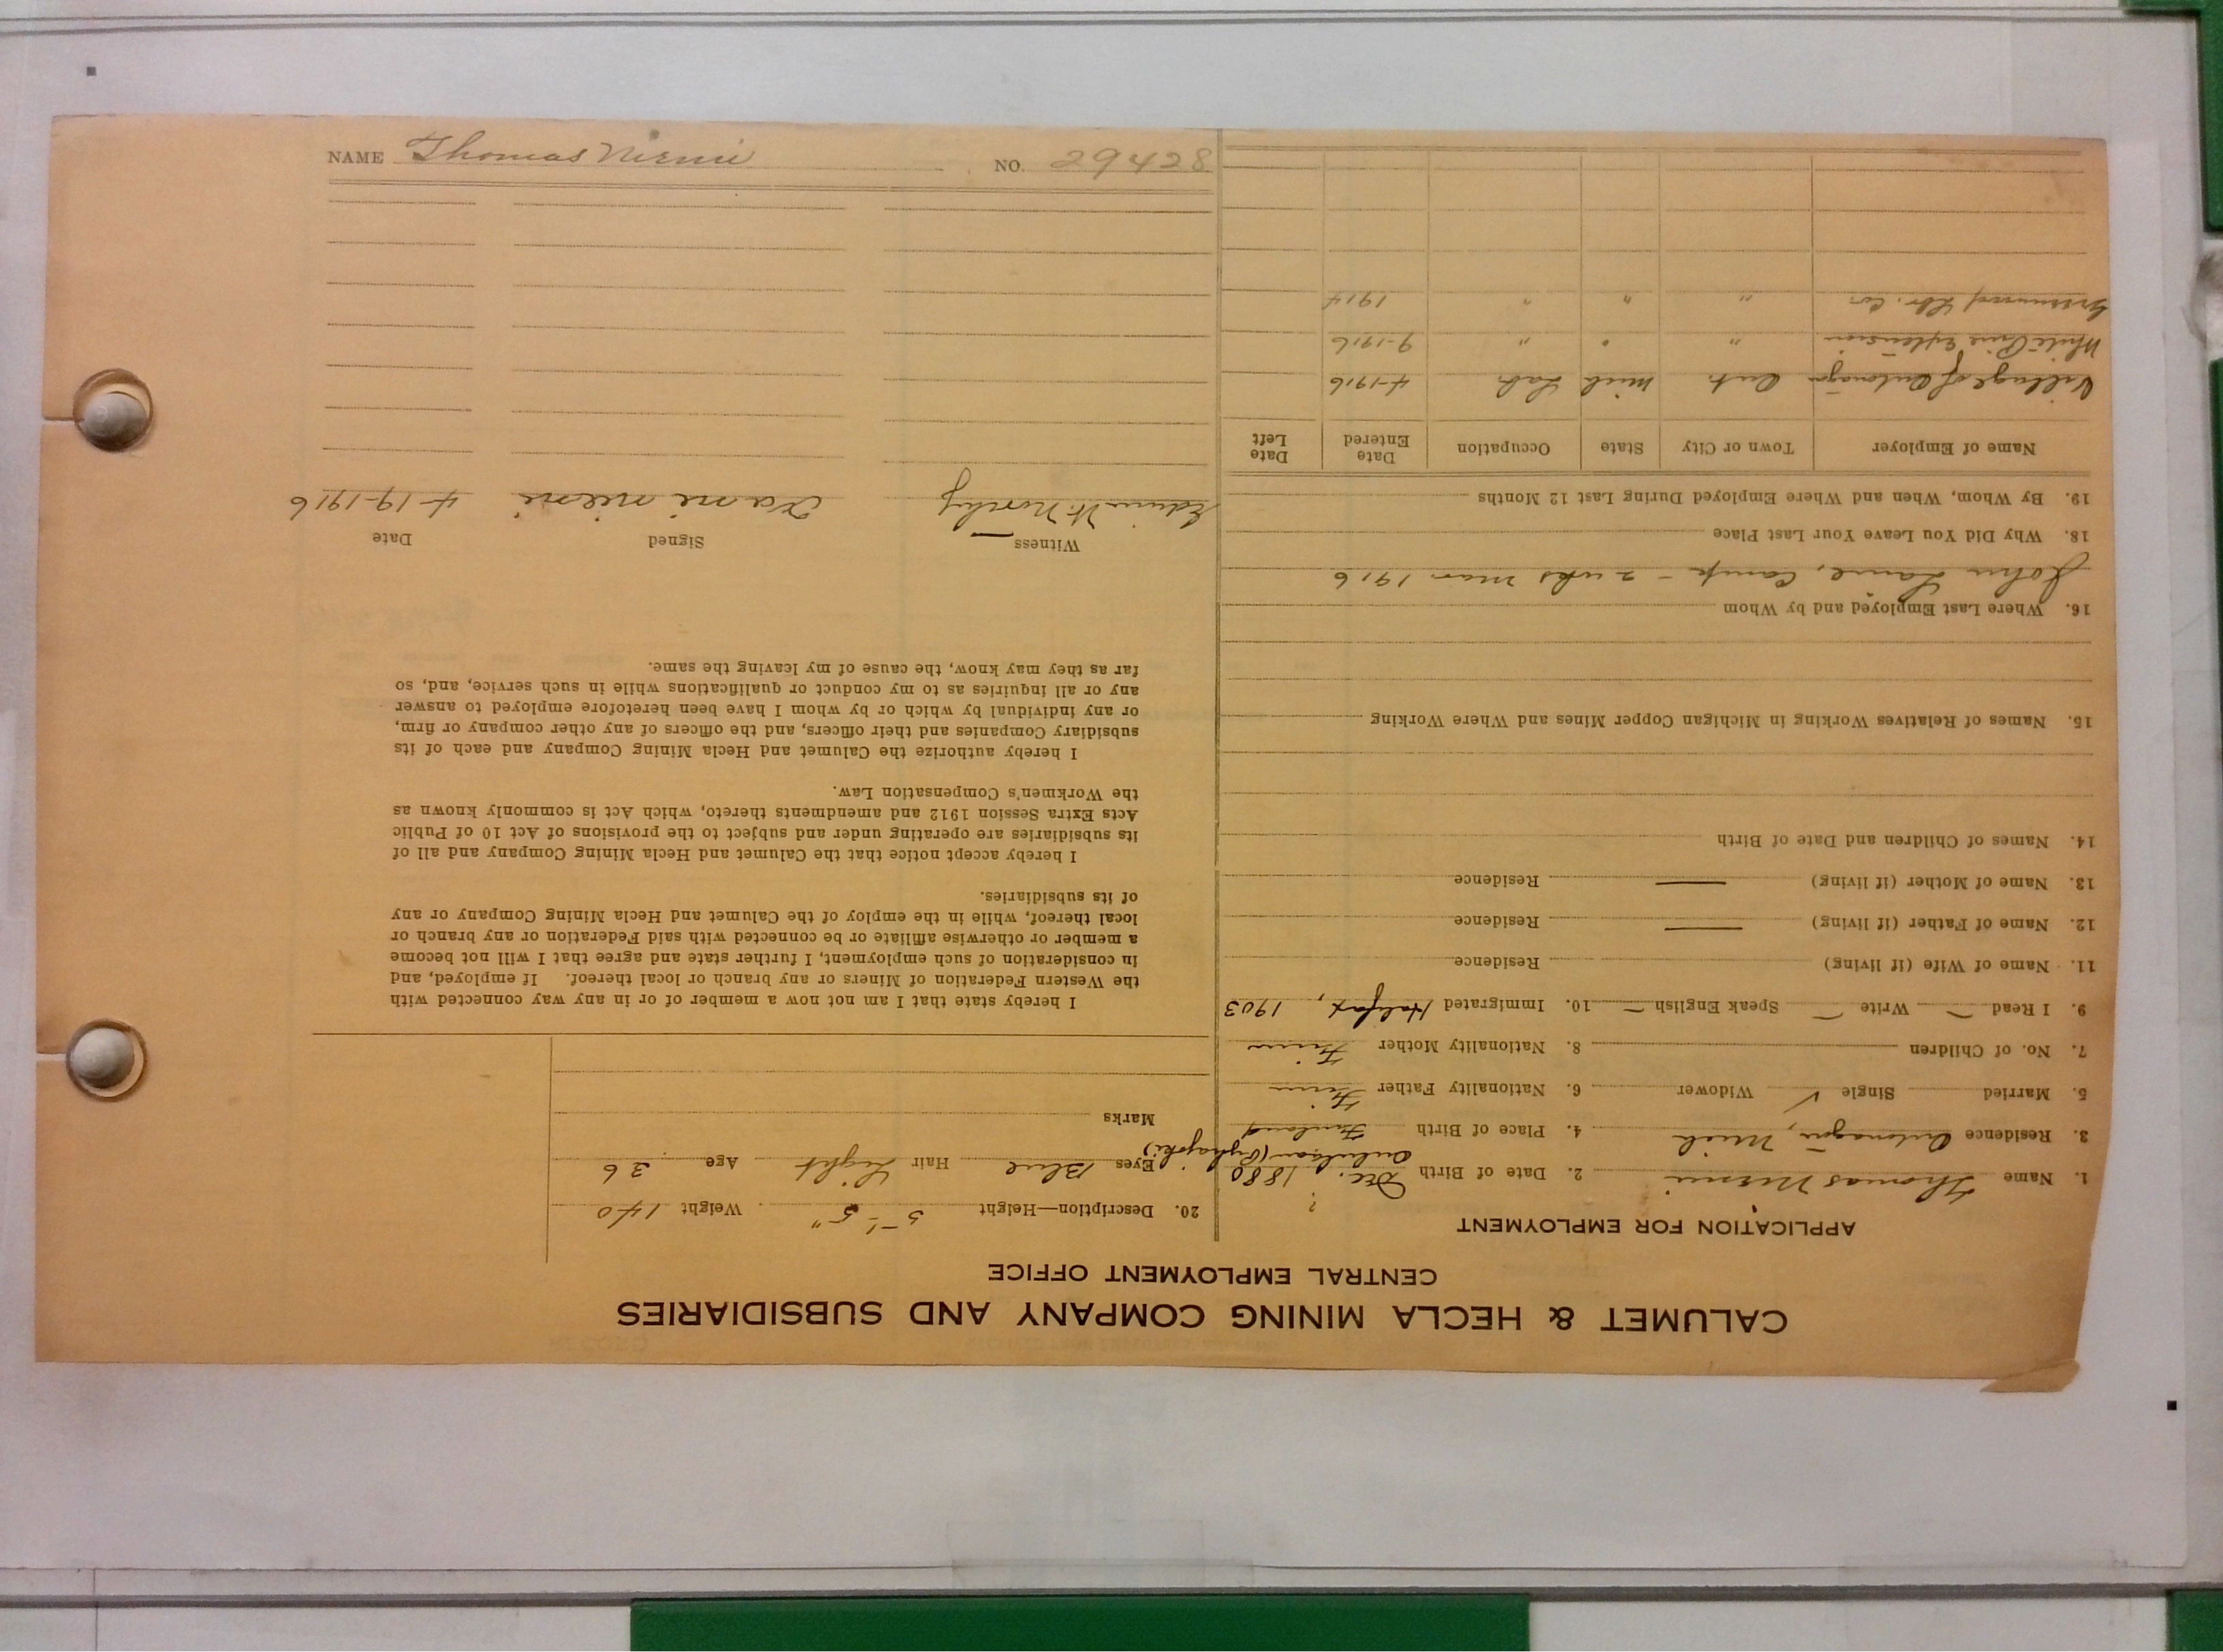 CALUMET & HECLA MINING COMPANY AND SUBSIDIARIES
CENTRAL EMPLOYMENT OFFICE
APPLICATION FOR EMPLOYMENT
1. Name Thomas Niemi 2. Date of Birth Dec. 1880 ?
3. Residence Ontonagon, Mich 4. Place of Birth Finland
5. Married Single ✓ Widower 6. Nationality Father Finn
7. No. of Children 8. Nationality Mother Finn
9. I Read — Write — Speak English — 10. Immigrated Halifax, 1903
11. Name of Wife (if living) Residence
12. Name of Father (if living) — Residence
13. Name of Mother (if living) — Residence
14. Names of Children and Date of Birth
15. Names of Relatives Working in Michigan Copper Mines and Where Working
16. Where Last Employed and by Whom
John Lane, Camp - 2 wks Mar 1916
18. Why Did You Leave Your Last Place
19. By Whom, When and Where Employed During Last 12 Months
Name of Employer Town or City State Occupation Date Entered Date Left
Village of Ontonagon Ont. Mich Lab. 4-1916
White Pine Extension " " " 9-1916
Lbr. Co. " " " 1914
20. Description—Height 5'-5" Weight 140
Eyes Blue Hair Light Age 36
Marks
I hereby state that I am not now a member of or in any way connected with
the Western Federation of Miners or any branch or local thereof. If employed, and
in consideration of such employment, I further state and agree that I will not become
a member or otherwise affiliate or be connected with said Federation or any branch or
local thereof, while in the employ of the Calumet and Hecla Mining Company or any
of its subsidiaries.
I hereby accept notice that the Calumet and Hecla Mining Company and all of
its subsidiaries are operating under and subject to the provisions of Act 10 of Public
Acts Extra Session 1912 and amendments thereto, which Act is commonly known as
the Workmen's Compensation Law.
I hereby authorize the Calumet and Hecla Mining Company and each of its
subsidiary Companies and their officers, and the officers of any other company or firm,
or any individual by which or by whom I have been heretofore employed to answer
any or all inquiries as to my conduct or qualifications while in such service, and, so
far as they may know, the cause of my leaving the same.
Witness Signed Date
Edwin W. 4-19-1916
NAME Thomas Niemi NO. 29428